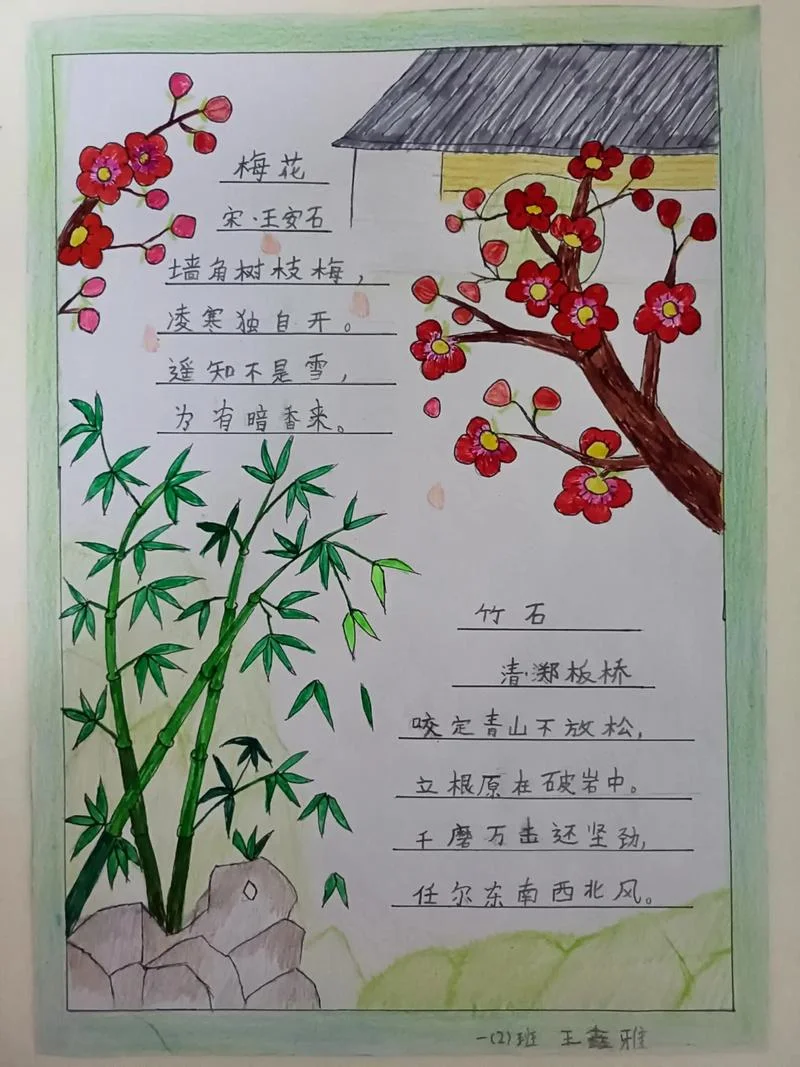 梅花
宋·王安石
墙角树枝梅，
凌寒独自开。
遥知不是雪，
为有暗香来。
竹石
清·郑板桥
咬定青山不放松，
立根原在破岩中。
千磨万击还坚劲，
任尔东南西北风。
一(2)班 王鑫雅